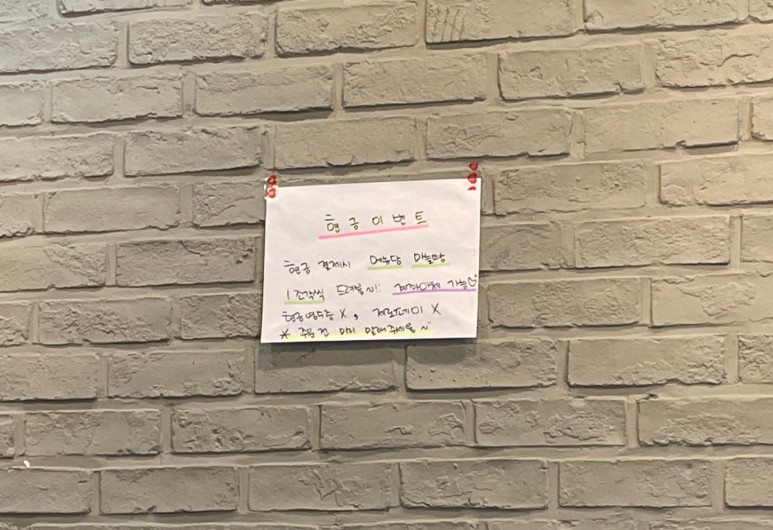 현금이벤트
현금 결제시 메뉴당 마늘빵
1조각씩 드려용~!! 계좌이체 가능
현금영수증 X, 제로페이 X
* 주문 전 미리 말해주세용~